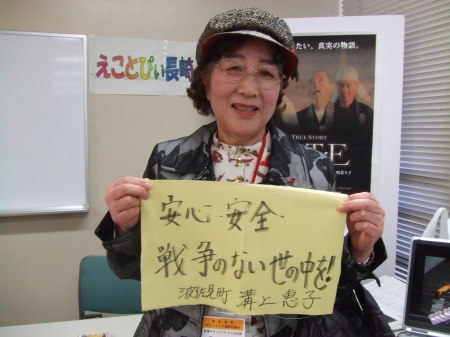 えことぴぃ長崎
たい、真実の物語。
TRUE STORY
安心 安全
戦争のない世の中を!
波佐見町 溝上 恵子